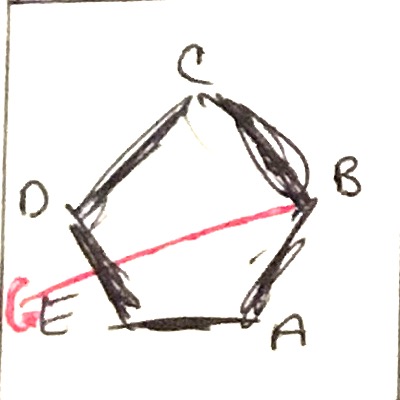 C
D B
E A